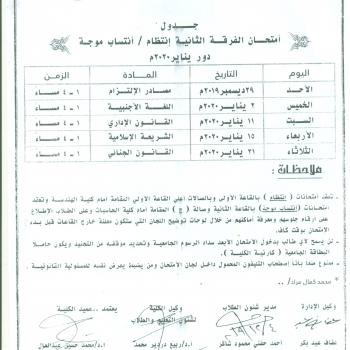 جــدول
امتحـان الفـرقة الثـانية إنتظـام / أنتساب موجة
دور يناير ٢٠٢٠م
اليوم التاريخ المـادة الـزمن
الأحــد ٢٩ديسمبر ٢٠١٩م مصـادر الإلتـزام ١ - ٤ مسـاء
الخميس ٢ يناير ٢٠٢٠م اللغـة الأجنبيـة ١ - ٤ مسـاء
السبت ١١ يناير ٢٠٢٠م القـانون الإداري ١ - ٤ مسـاء
الأربعاء ١٥ يناير ٢٠٢٠م الشريعـة الإسلامية ١ - ٤ مسـاء
الثلاثاء ٢١ يناير ٢٠٢٠م القـانون الجنـائي ١ - ٤ مسـاء
ملاحظات :
- تنعقد امتحانات ( إنتظام ) بالقاعة الأولى وبالصالات أعلى القاعة الأولى المقامة أمام كلية الهندسة وتعقد
امتحانات ( إنتساب موجد ) بالقاعة الثانية وصالة ( ج ) المقامة أمام كلية الحاسبات وعلى الطلاب الإطلاع
على أرقام جلوسهم ومعرفة أماكنهم من خلال لوحات توضيح اللجان التي ستكون معلنة خارج القاعات قبل بدء
الامتحان بوقت كاف.
- لن يسمح لأي طالب بدخول الامتحان الأبعد سداد الرسوم الجامعية وتحديد موقفه من التجنيد ويكون حاملا
البطاقة الجامعية ( كارنية الكلية ).
- ممنوع منعا باتا إصطحاب التليفون المحمول داخل لجان الامتحان ومن يضبط يعرض نفسه للمسئولية القانونية .
محمد كمال مراد/
وكيل الإدارة مدير شئون الطلاب وكيل الكلية يعتمد ،، عميد الكلية
لشئون التعليم والطلاب
عفاف عبد بكر أحمد حفني محمود شاكر أ.د/ربيع دردير محمد أ.د/محمد حسين عبدالعال